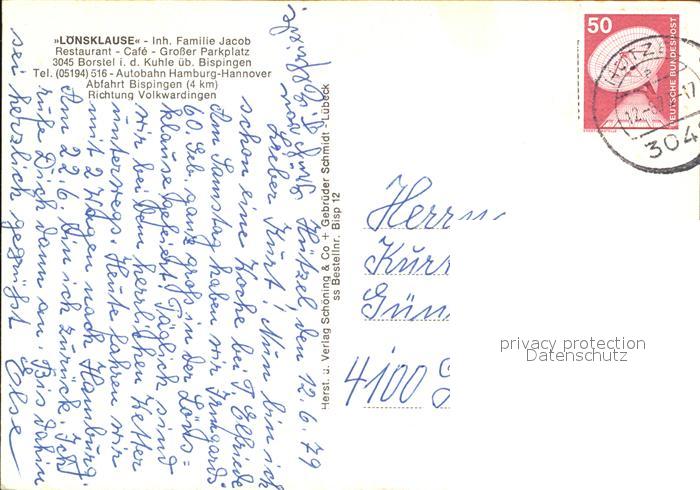 »LÖNSKLAUSE« - Inh. Familie Jacob
Restaurant - Café - Großer Parkplatz
3045 Borstel i. d. Kuhle üb. Bispingen
Tel. (05194) 516 - Autobahn Hamburg-Hannover
Abfahrt Bispingen (4 km)
Richtung Volkwardingen
Hützel, den 12.6.79
Lieber Kurt! Nun bin ich
schon eine Woche bei T. Elfriede
Am Samstag haben wir Irmgards
60. Geb. ganz groß in der Löns=
klause gefeiert! Täglich sind
wir bei dem herrlichen Wetter
unterwegs. Heute fahren wir
mit 2 Wagen nach Hamburg.
Am 22.6. bin ich zurück. Ich
rufe Dich dann an. Bis dahin
sei herzlich gegrüßt Else
Herst. u. Verlag Schöning & Co + Gebrüder Schmidt - Lübeck
ss Bestellnr. Bisp 12
50
DEUTSCHE BUNDESPOST
12.-6. -17
304
Herrn
Kurt
Gün
4100
privacy protection
Datenschutz